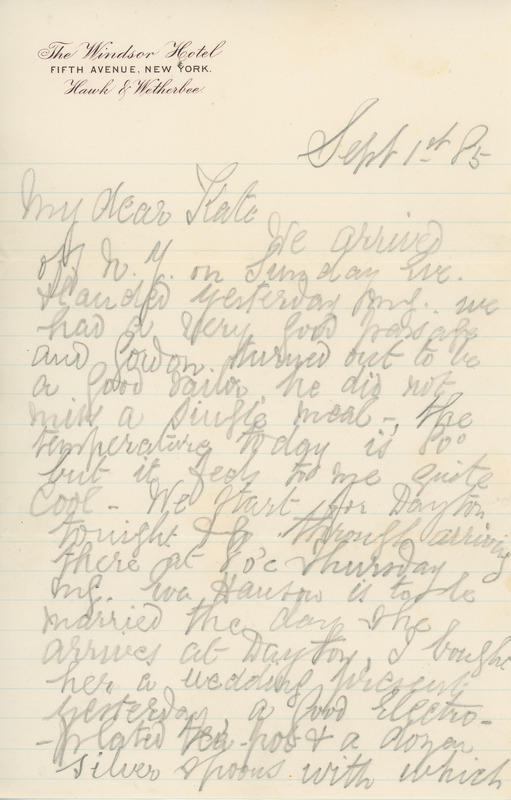 The Windsor Hotel
FIFTH AVENUE, NEW YORK.
Hawk & Wetherbee
Sept 1st 85
My dear Kate
We arrived
off N. Y. on Sunday Eve.
& landed yesterday mng. we
had a very good passage
and Gordon turned out to be
a good sailor he did not
miss a single meal - the
temperature today is 80°
but it feels to me quite
cool - We start for Dayton
tonight & go through arriving
there at 8 o'c Thursday
mg. Hanson is to be
married the day she
arrives at Dayton, I bought
her a wedding present
yesterday a good Electro-
-plated tea-pot & a dozen
silver spoons with which